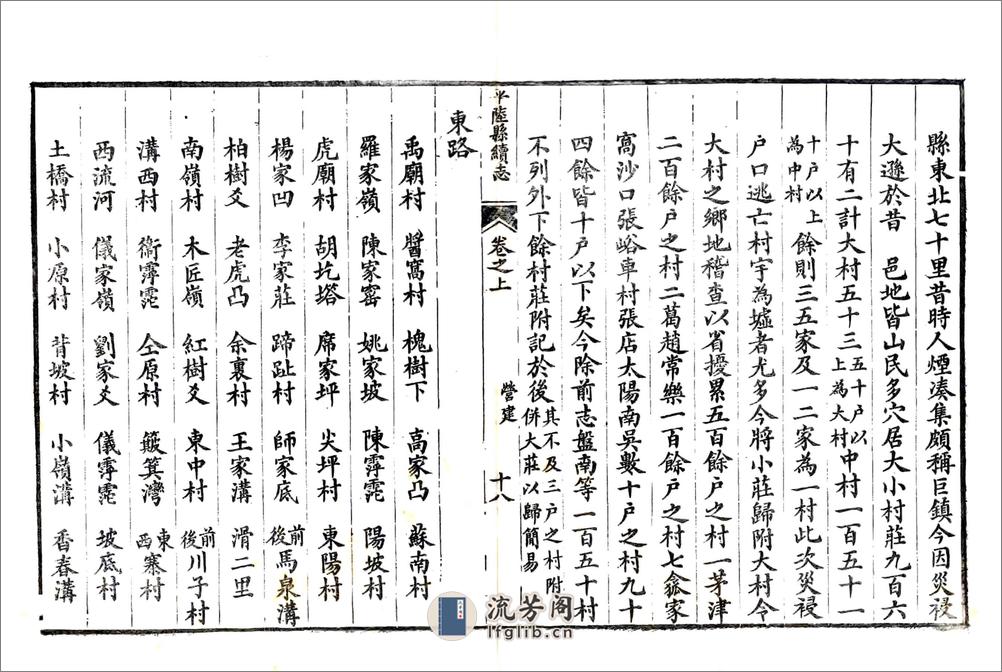 縣東北七十里昔時人煙湊集頗稱巨鎮今因災祲
大遜於昔　邑地皆山民多穴居大小村莊九百六
十有二計大村五十三五十戶以上為大村中村一百五十一
十戶以上為中村餘則三五家及一二家為一村此次災祲
戶口逃亡村宇為墟者尤多今將小莊歸附大村令
大村之鄉地稽查以省擾累五百餘戶之村一茅津
二百餘戶之村二葛趙常樂一百餘戶之村七盤家
窩沙口張峪車村張店太陽南吳數十戶之村九十
四餘皆十戶以下矣今除前志盤南等一百五十村
不列外下餘村莊附記於後其不及三戶之村附併大莊以歸簡易
平陸縣續志　卷之上　營建　十八
東路
禹廟村　醬窩村　槐樹下　高家凸　蘇南村
羅家嶺　陳家窰　姚家坡　陳霶霓　陽坡村
虎廟村　胡圪塔　席家坪　尖坪村　東陽村
楊家凹　李家莊　蹄趾村　師家底　前後馬泉溝
柏樹爻　老虎凸　余裏村　王家溝　滑二里
南嶺村　木匠嶺　紅樹爻　東中村　前後川子村
溝西村　衛霶霓　仝原村　簸箕灣　東西寨村
西流河　儀家嶺　劉家爻　儀霶霓　坡底村
土橋村　小原村　背坡村　小嶺溝　香春溝
流芳阁
lfglib.cn